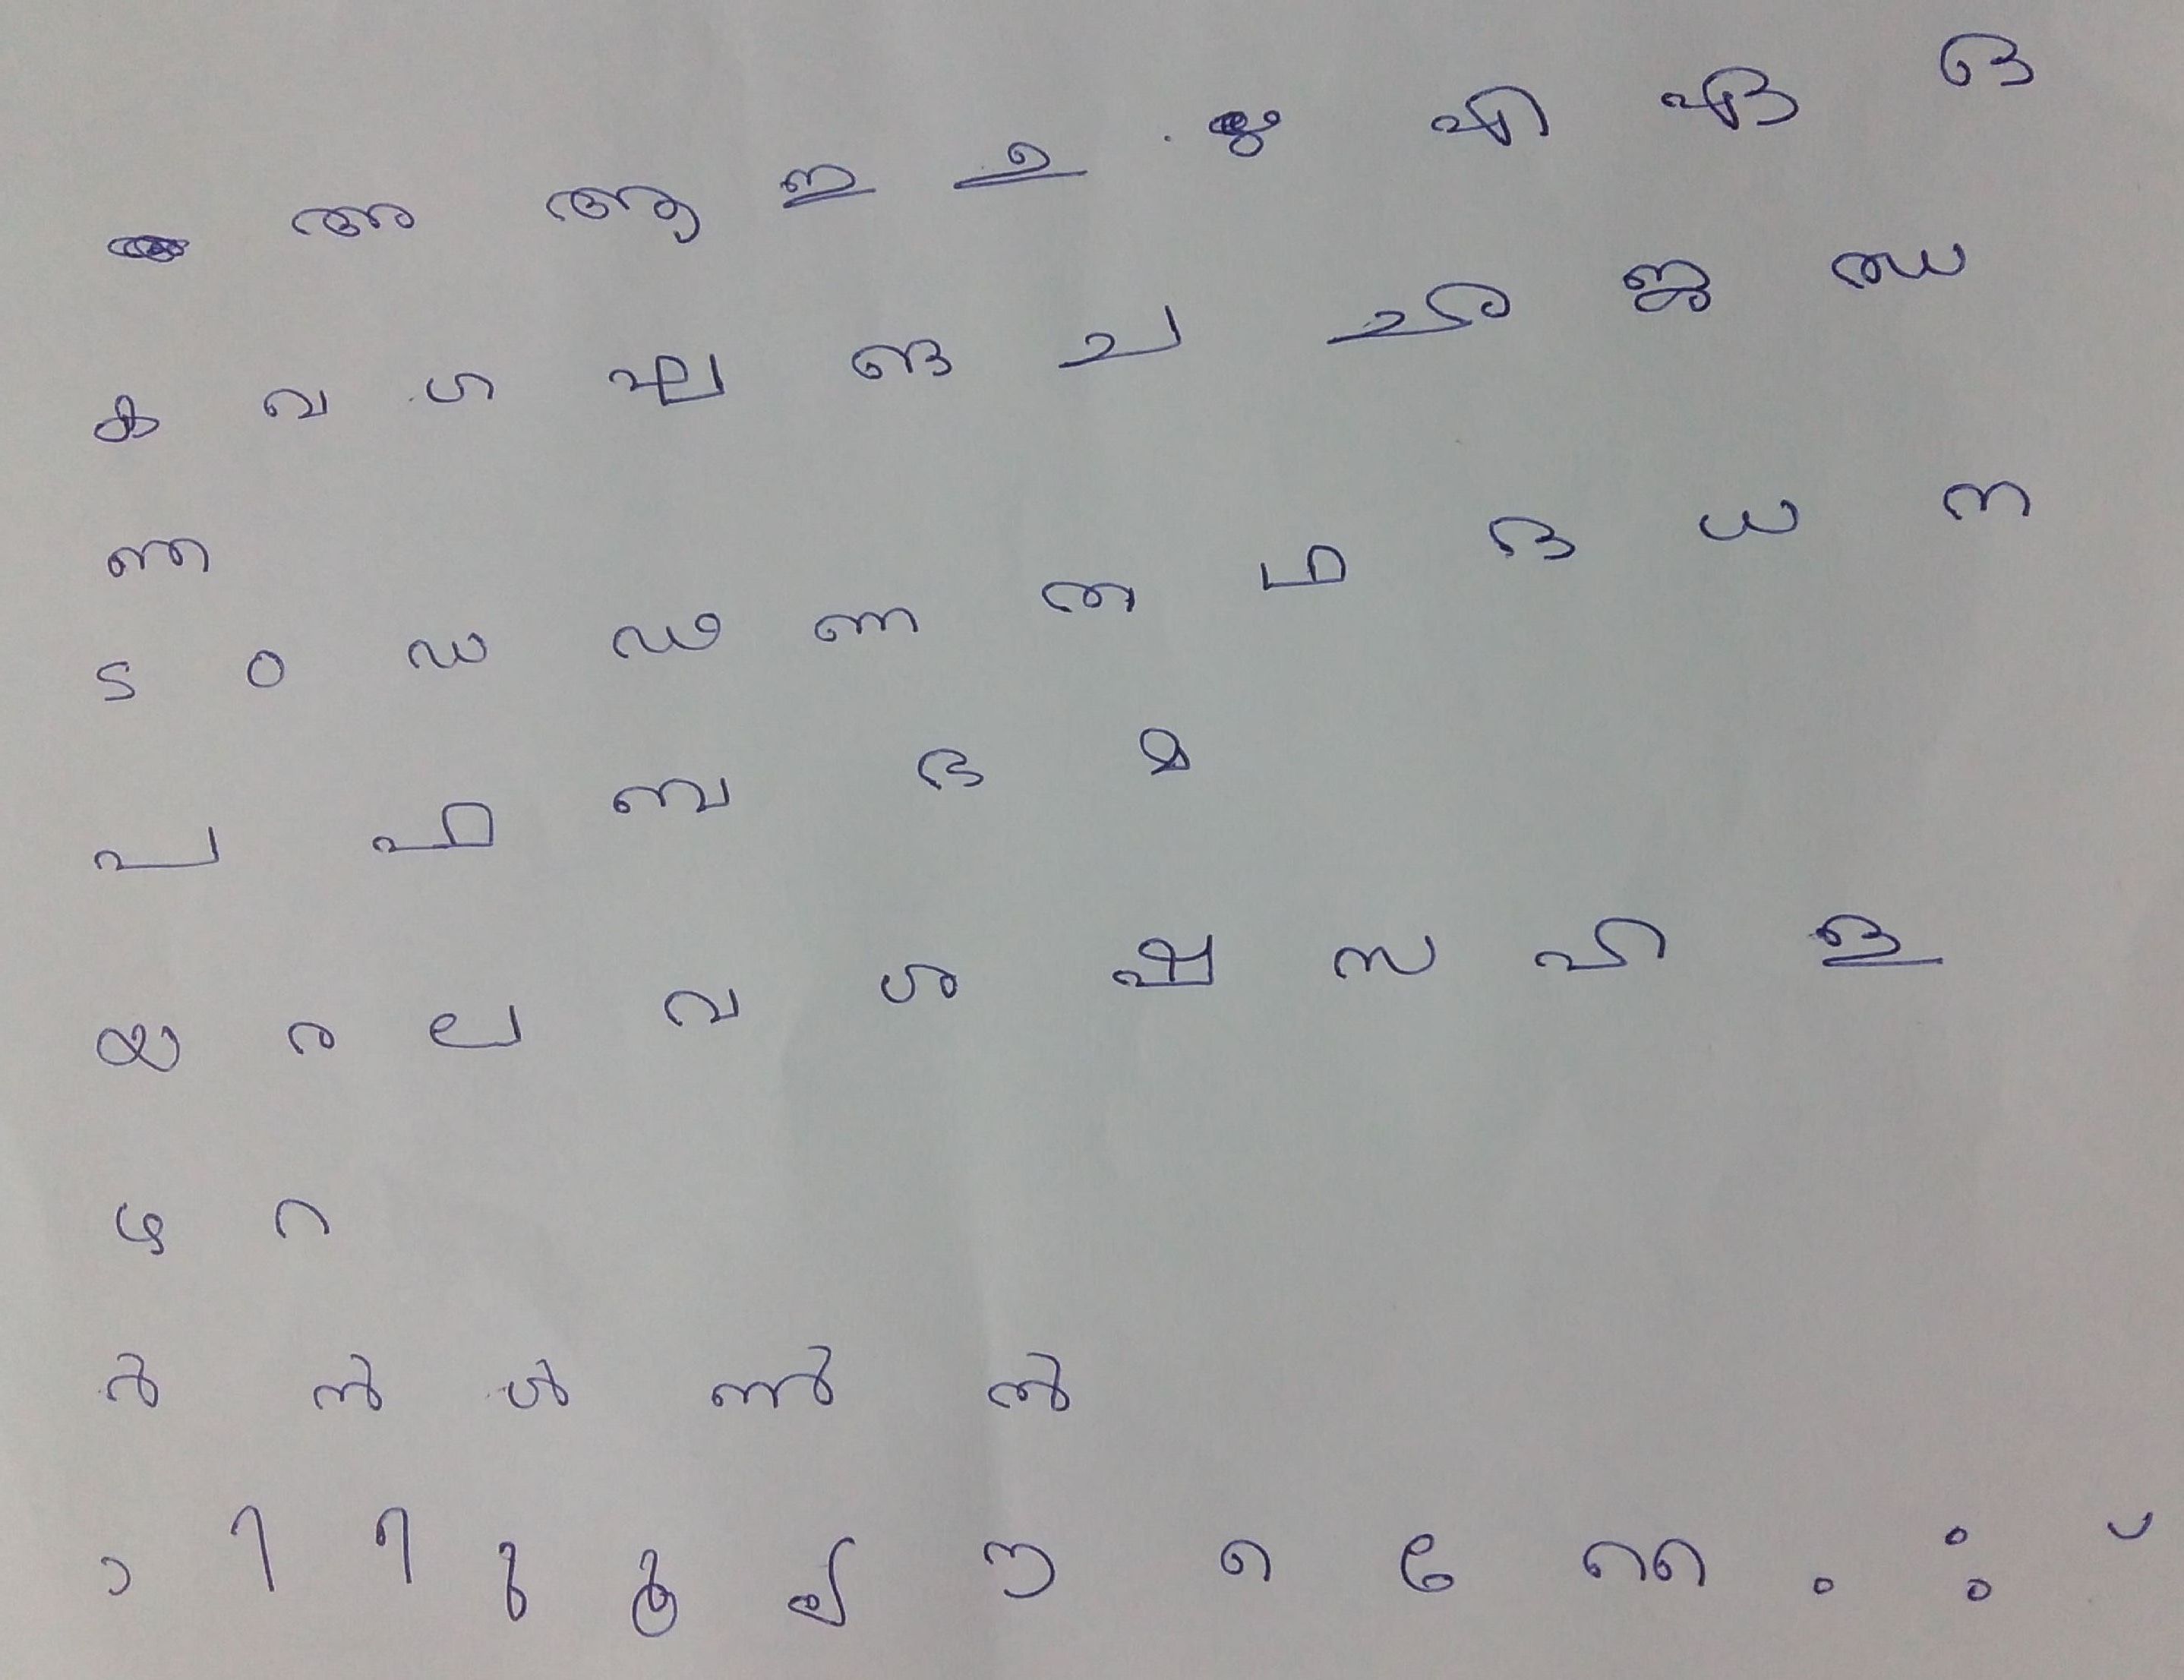 അ ആ ഇ ഉ ഋ എ ഏ ഒ
ക ഖ ഗ ഘ ങ ച ഛ ജ ഝ
ഞ
ട ഠ ഡ ഢ ണ ത ഥ ദ ധ ന
പ ഫ ബ ഭ മ
യ ര ല വ ശ ഷ സ ഹ ള
ഴ റ
ർ ൻ ൾ ൺ ൽ
ാ ി ീ ു ൂ ൃ െ േ ൈ ം ഃ ്